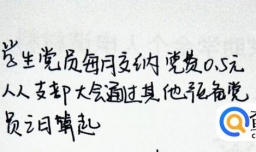 学生党员每月交纳党费0.5元
从支部大会通过其他预备党
员之日算起